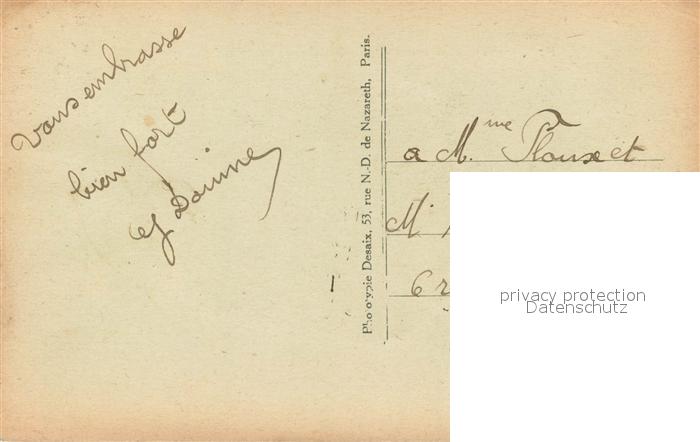 Vous embrasse
bien fort
Phototypie Desaix, 53, rue N.-D. de Nazareth, Paris.
a Mme Plouxet
M
6 r
privacy protection
Datenschutz